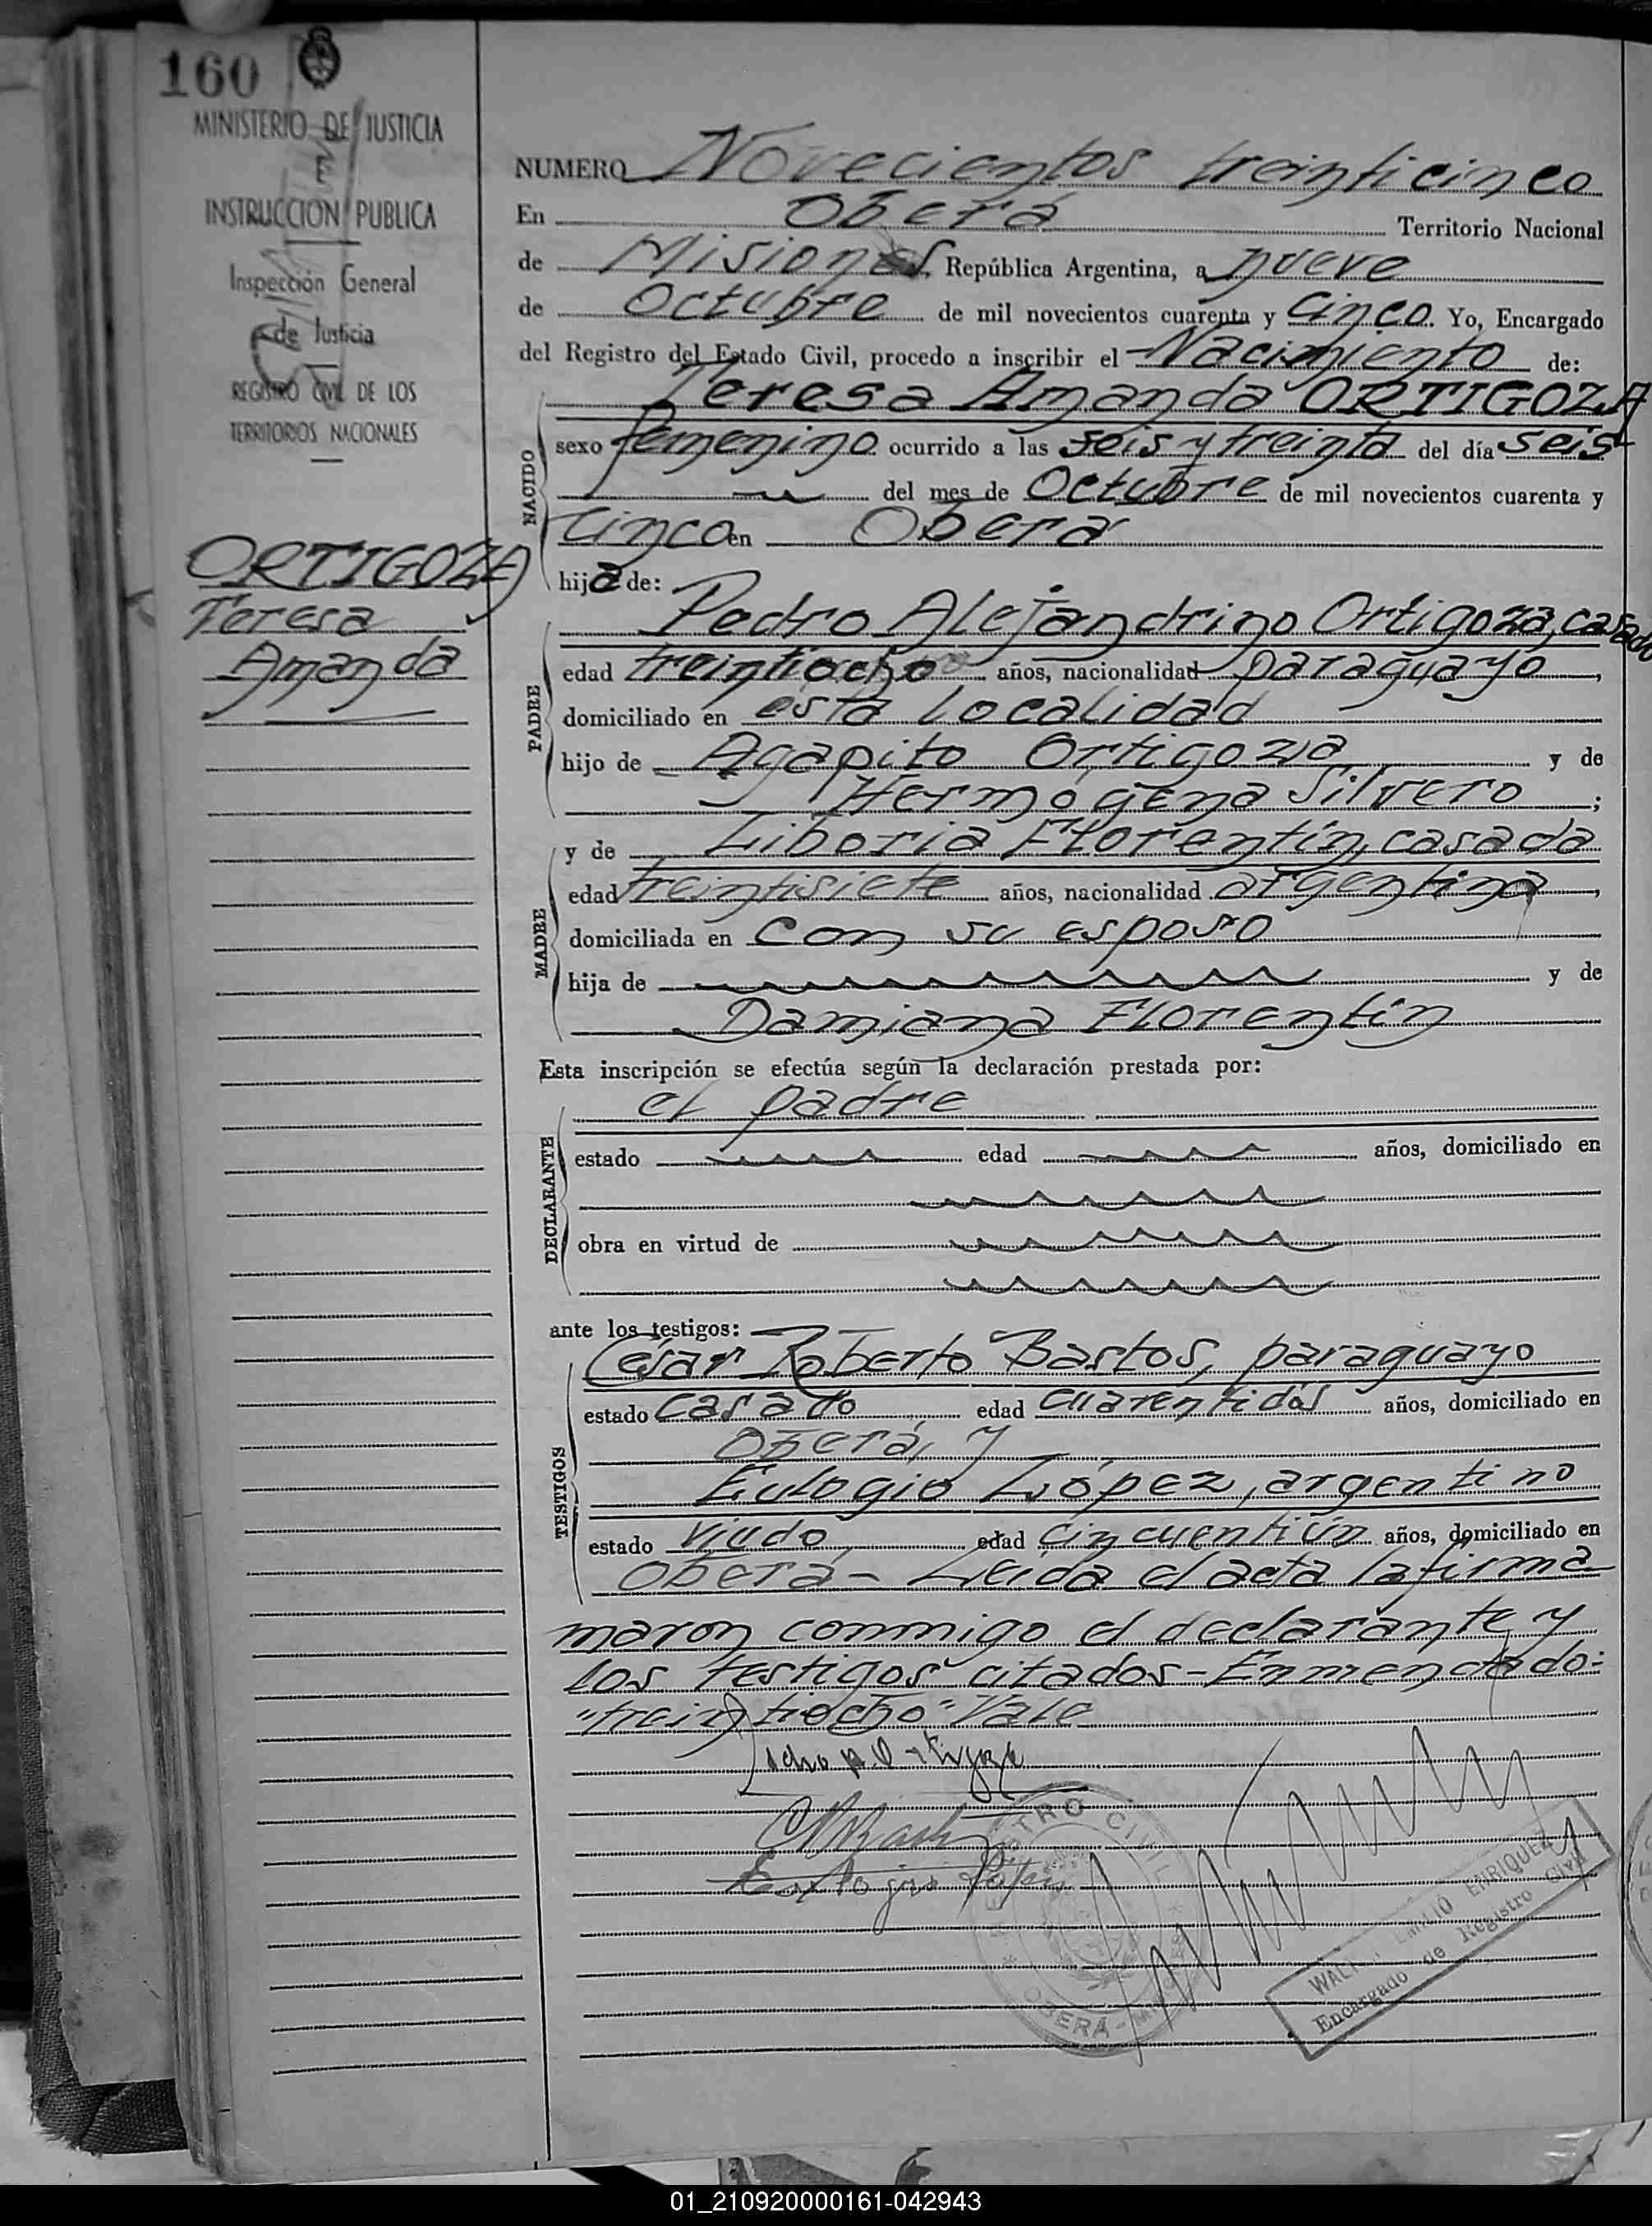 160
MINISTERIO DE JUSTICIA
E
INSTRUCCION PUBLICA
Inspección General
de Justicia
REGISTRO CIVIL DE LOS
TERRITORIOS NACIONALES
ORTIGOZA
Teresa
Amanda
NUMERO Novecientos treinticinco
En Oberá Territorio Nacional
de Misiones, República Argentina, a nueve
de Octubre de mil novecientos cuarenta y cinco. Yo, Encargado
del Registro del Estado Civil, procedo a inscribir el Nacimiento de:
NACIDO
Teresa Amanda ORTIGOZA
sexo femenino ocurrido a las seis y treinta del día seis
del mes de Octubre de mil novecientos cuarenta y
cinco en Oberá
hija de:
PADRE
Pedro Alejandrino Ortigoza, casado
edad treintiocho años, nacionalidad paraguayo,
domiciliado en esta localidad
hijo de Agapito Ortigoza y de
Hermógena Silvero;
MADRE
y de Liboria Florentín, casada
edad treintisiete años, nacionalidad argentina,
domiciliada en con su esposo
hija de y de
Damiana Florentín
Esta inscripción se efectúa según la declaración prestada por:
DECLARANTE
el padre
estado edad años, domiciliado en
obra en virtud de
ante los testigos:
TESTIGOS
César Roberto Bastos, paraguayo
estado casado edad cuarentidós años, domiciliado en
Oberá, y
Eulogio López, argentino
estado viudo, edad cincuentiún años, domiciliado en
Oberá - Leída el acta la firma
maron conmigo el declarante y
los testigos citados - Enmendado:
"treintiocho" Vale
Pedro A. Ortigoza
Eulogio López
REGISTRO CIVIL
OBERÁ - MISIONES
EMILIO ENRIQUEZ
Encargado de Registro Civil
01_210920000161-042943